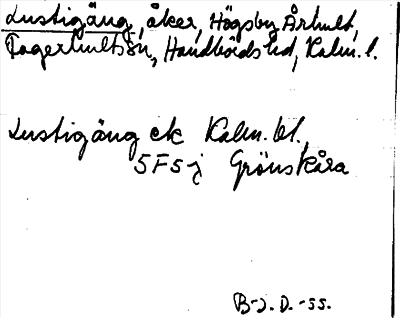 Lustigäng, åker, Högsby Århult,
Fagerhults sn, Handbörds hd, Kalm. l.
Lustigäng ek Kalm. bl.
5F5j Grönskåra
B-J. D. -55.